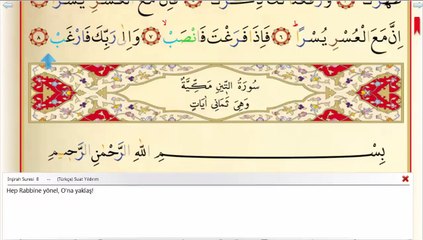 اِنَّ مَعَ الْعُسْرِ يُسْرًاۜ ﴿٦﴾ فَاِذَا فَرَغْتَ فَانْصَبْۙ ﴿٧﴾ وَاِلٰى رَبِّكَ فَارْغَبْ ﴿٨﴾
سُورَةُ التّ۪ينِ مَكِّيَّةٌ
وَهِيَ ثَمَانِي اٰيَاتٍ
بِسْمِ اللّٰهِ الرَّحْمٰنِ الرَّح۪يمِ
İnşirah Suresi 8 -- (Türkçe) Suat Yıldırım
Hep Rabbine yönel, O'na yaklaş!